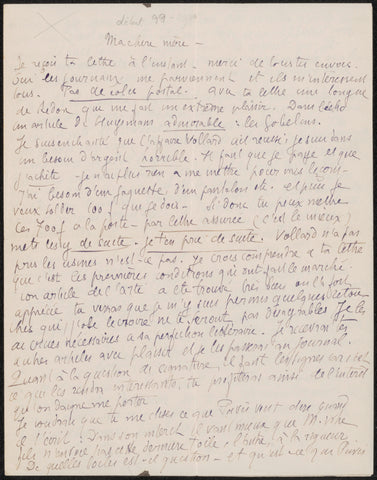 début 99
Ma chère mère -
Je reçois ta lettre à l'instant - merci de tous tes envois.
Oui les journaux me parviennent et ils m'intéressent
tous. Pas de colis postal. avec ta lettre une longue
de Redon qui me fait un extrême plaisir. Dans l'écho
un article de Huysmans admirable : les Gobelins.
Je suis enchanté que l'affaire Vollard ait réussi, je suis dans
un besoin d'argent horrible. Il faut que je paye et que
j'achète - je n'ai plus rien à me mettre pour mes leçons -
J'ai besoin d'une jaquette, d'un pantalon etc. et puis je
veux solder 100 f que je dois - Si donc tu peux mettre
ces 700 f à la poste - par lettre assurée (c'est le mieux)
mets les y de suite. Je t'en prie de suite. Vollard n'a pas
pris les usines n'est-ce pas. Je crois comprendre à ta lettre
que c'est les premières conditions qui ont fait le marché.
Ton article de l'art a été trouvé très bien où ils l'ont
apprécié tu verras que je m'y suis permis quelques retou
ches qui j'ose le croire ne te seront pas désagréables. Je les
ai crues nécessaires à sa perfection littéraire. Je recevrai tes
autres articles avec plaisir et je les passerai au journal.
Quant à la question de connaître, il faut les signer car c'est
ce que les rendra intéressants, tu profiteras ainsi de l'intérêt
qu'on daigne me porter.
Je voudrais que tu me dises ce que
De quelles toiles est-il question - et qu'est-ce que